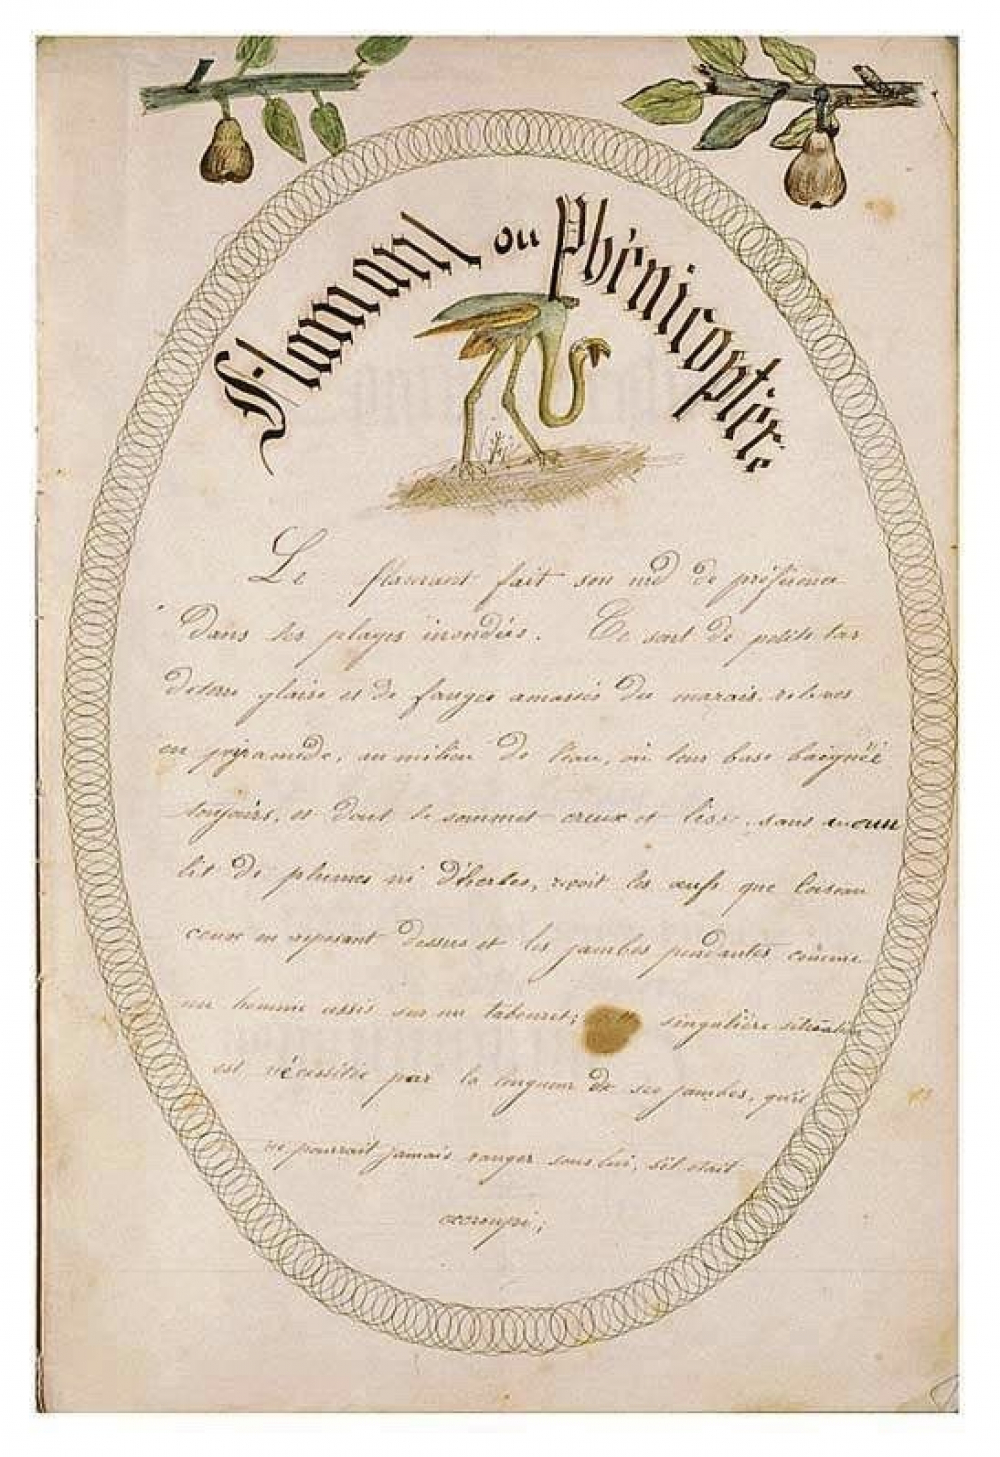 Flamant ou Phénicoptère
Le flamant fait son nid de préférence
dans les plages inondées. Ce sont de petits tas
de terre glaise et de fanges amassés du marais relevés
en pyramide, au milieu de l'eau, où leur base baignée
toujours, et dont le sommet creux et lisse, sans aucun
lit de plumes ni d'herbes, reçoit les œufs que l'oiseau
couve en reposant dessus et les jambes pendantes comme
un homme assis sur un tabouret; singulière situation
est nécessitée par la longueur de ses jambes, qu'il
ne pourrait jamais ranger sous lui, s'il était
accroupi;